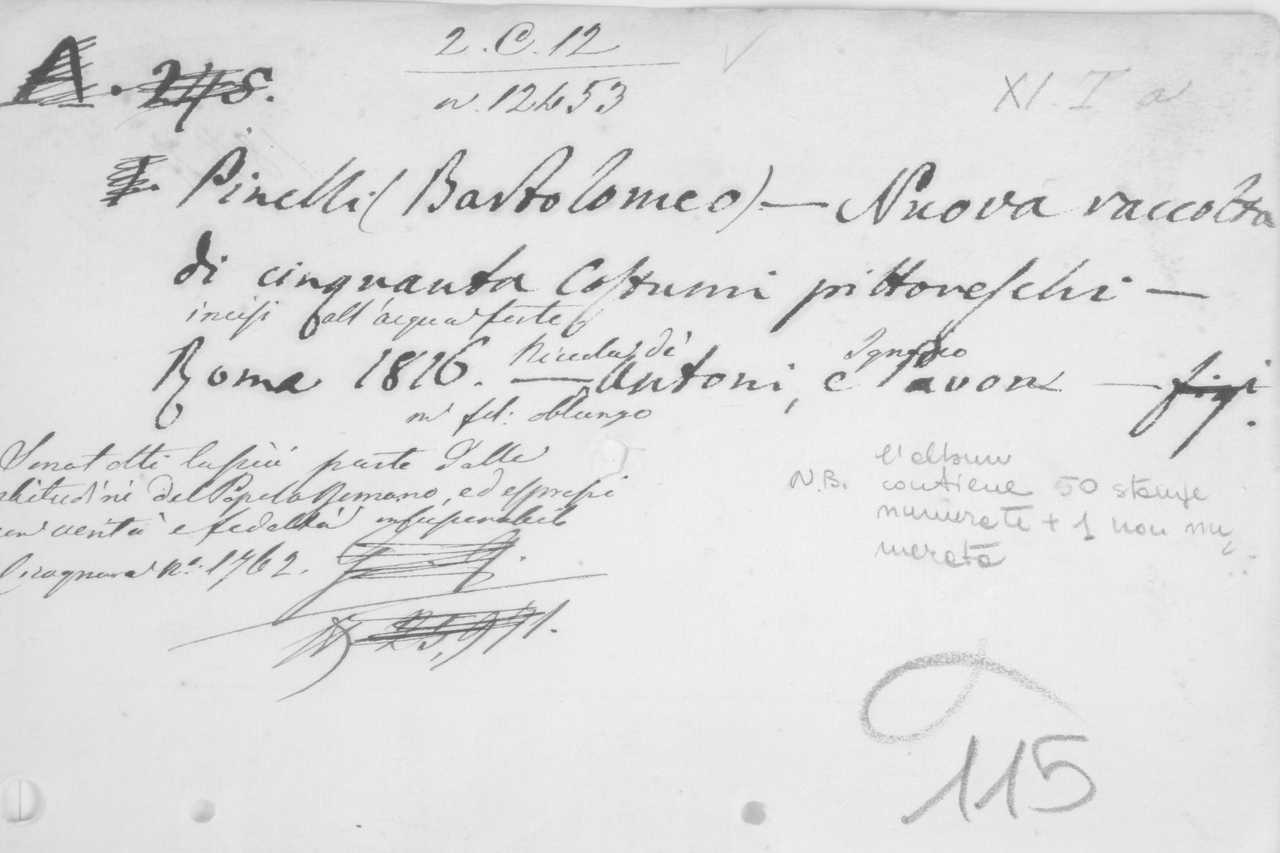 2.C.12
n. 12453
XI. I a
A. 245.
I. Pinelli (Bartolomeo) — Nuova raccolta
di cinquanta Costumi pittoreschi —
incisi all'acqua forte
Roma 1816. — Nicola di Antoni, e Ignazio Pavon — fig.
in fol. oblungo
Sonot otti la più parte dalle
abitudini del Popolo Romano, ed espressi
con verità e fedeltà insuperabile
Cicognara N.o 1762.
N. 25,971.
N.B. l'album
contiene 50 stampe
numerate + 1 non nu
merata
115